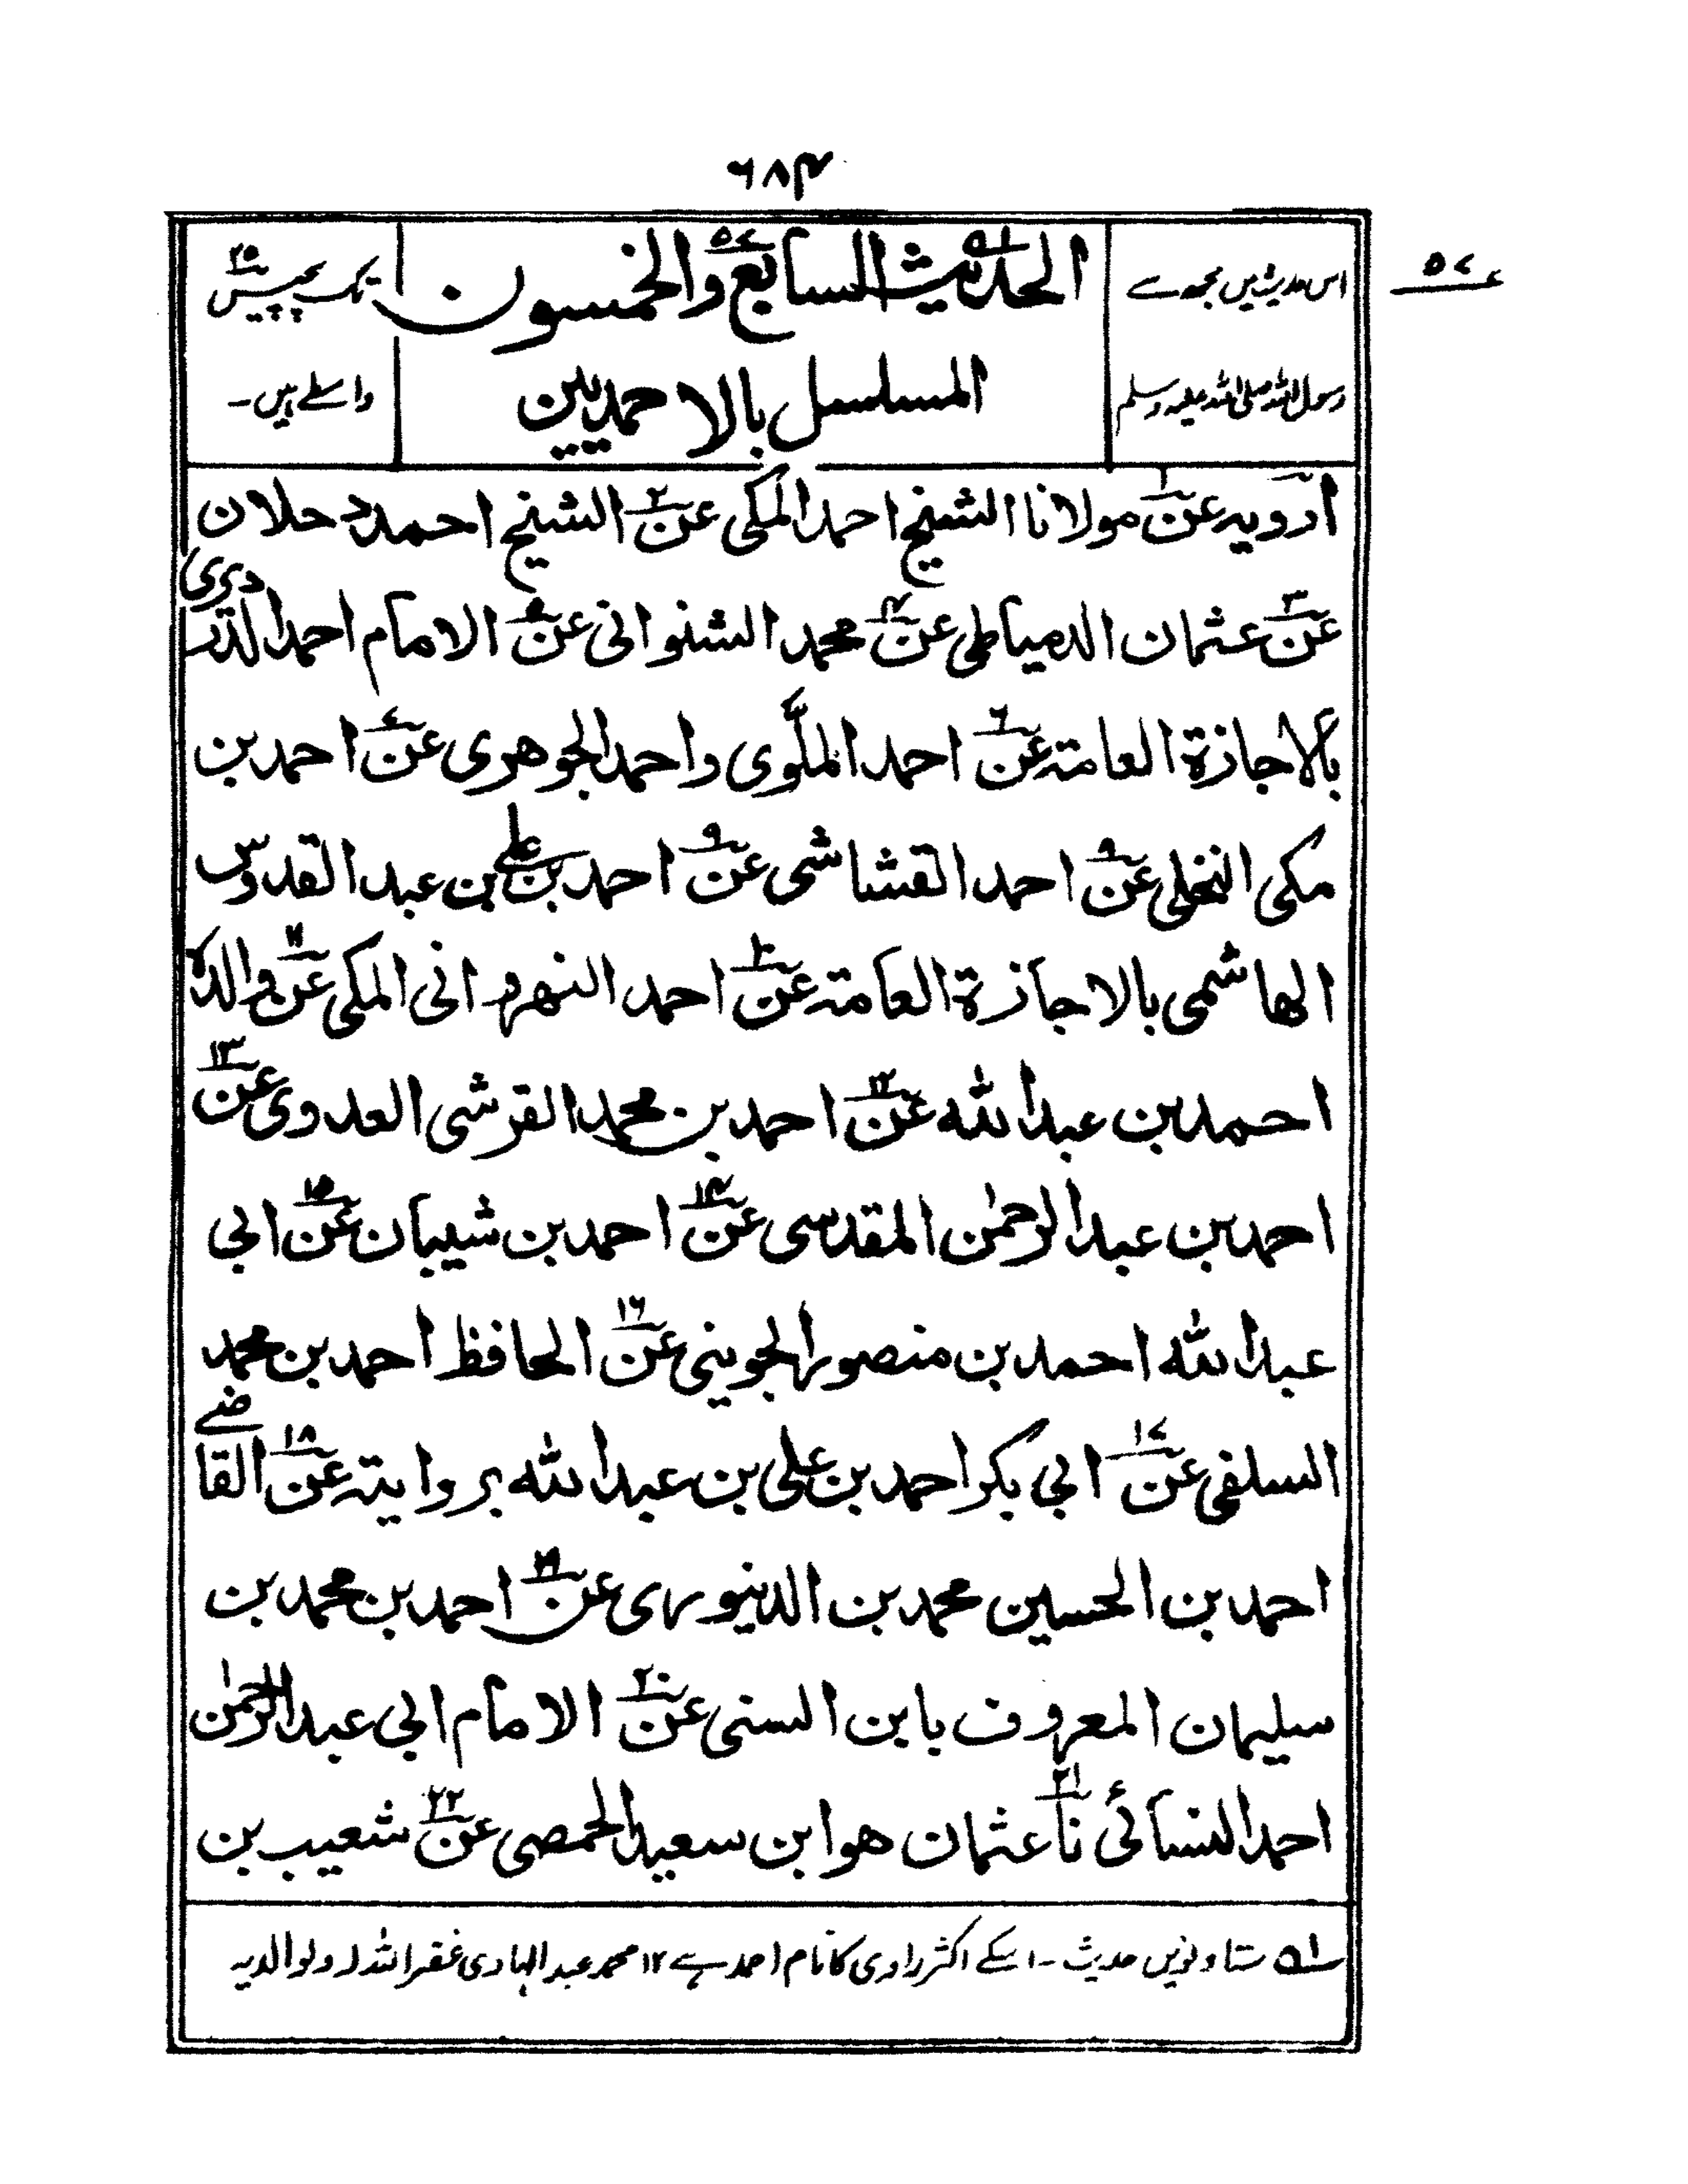 ۶۸۴
۵۷
اس حدیث میں مجھ سے
الحدیث السابع والخمسون
۵۷
تک پچیس
۲۵
رسول اللہ صلی اللہ علیہ وسلم
المسلسل بالاحمدیین
واسطے ہیں۔
ارویہ عن۱ مولانا الشیخ احمد المکی عن۲ الشیخ احمد دحلان
عن۳ عثمان الدمیاطی عن۴ محمد الشنوانی عن۵ الامام احمد الدردیری
بالاجازة العامۃ عن۶ احمد الملّوی واحمد الجوھری عن۷ احمد بن
مکی النخلی عن۹ احمد القشاشی عن۹ احمد بن علی بن عبد القدوس
الھاشمی بالاجازة العامۃ عن۱۰ احمد النھروانی المکی عن۱۱ والدہ
احمد بن عبد اللہ عن۱۲ احمد بن محمد القرشی العدوی عن۱۳
احمد بن عبد الرحمٰن المقدسی عن۱۴ احمد بن شیبان عن۱۵ ابی
عبد اللہ احمد بن منصور الجوینی عن۱۶ الحافظ احمد بن محمد
السلفی عن۱۷ ابی بکر احمد بن علی بن عبد اللہ بروایتہ عن۱۸ القاضے
احمد بن الحسین محمد بن الدینوری عن۱۹ احمد بن محمد بن
سلیمان المعروف بابن السنی عن۲۰ الامام ابی عبد الرحمٰن
احمد النسائی نا۲۱ عثمان ھو ابن سعید الحمصی عن۲۲ شعیب بن
لہ۱ ستاونویں حدیث ۔ اسکے اکثر راوی کا نام احمد ہے ۱۲ محمد عبد الہادی غفر اللہ لہ ولوالدیہ